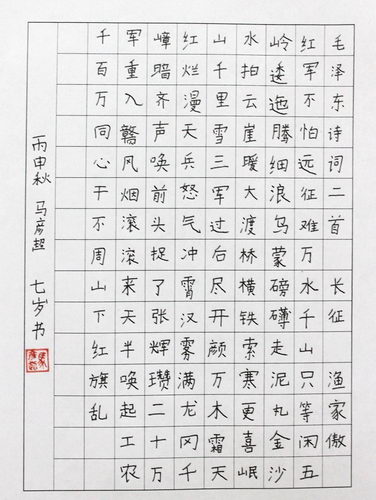 毛泽东诗词二首 长征 渔家傲
红军不怕远征难万水千山只等闲五
岭逶迤腾细浪乌蒙磅礴走泥丸金沙
水拍云崖暖大渡桥横铁索寒更喜岷
山千里雪三军过后尽开颜万木霜天
红烂漫天兵怒气冲霄汉雾满龙冈千
嶂暗齐声唤前头捉了张辉瓒二十万
军重入赣风烟滚滚来天半唤起工农
千百万同心干不周山下红旗乱
丙申秋 马彦超 七岁书